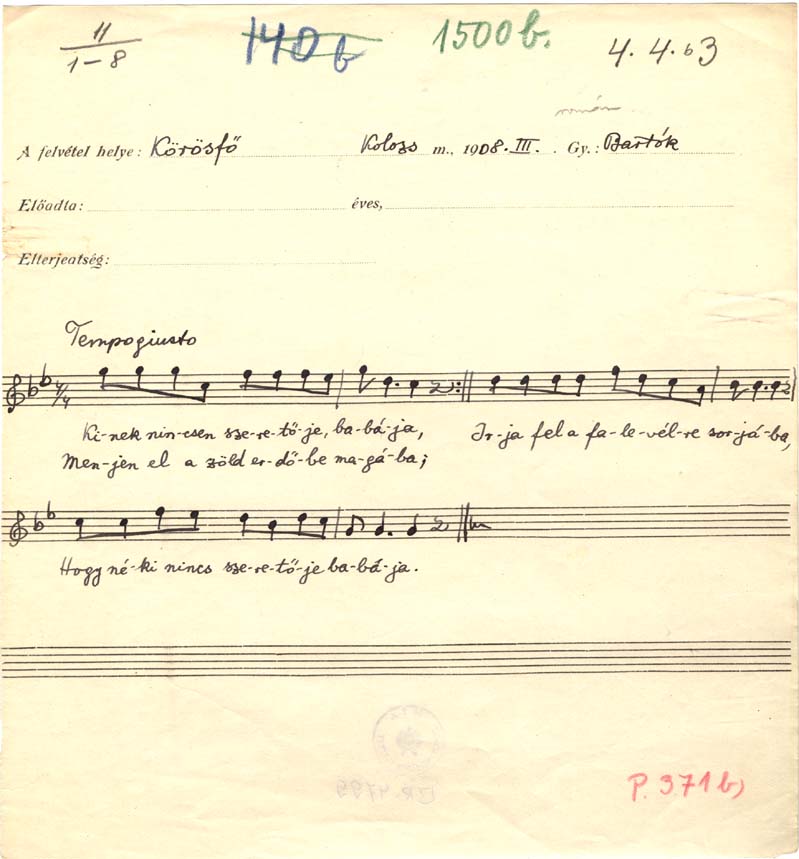 11
1-8
140b
1500b.
4. 4. b3
román
A felvétel helye: Körösfő Kolozs m., 1908. III. Gy.: Bartók
Előadta: éves,
Elterjeatség:
Tempogiusto
4/4
Ki-nek nin-csen sze-re-tő-je, ba-bá-ja, Ir-ja fel a fa-le-vél-re sor-já-ba,
Men-jen el a zöld er-dő-be ma-gá-ba;
Hogy né-ki nincs sze-re-tő-je ba-bá-ja.
P. 371 b)